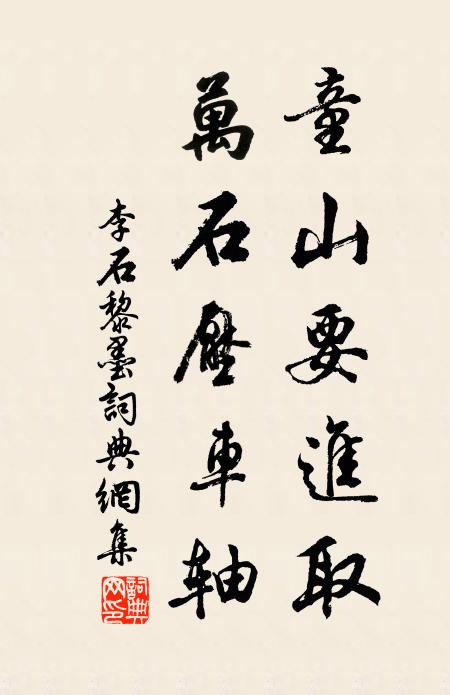 童山要進取
萬石壓車軸
李石黎墨詞典網集
詞典网印